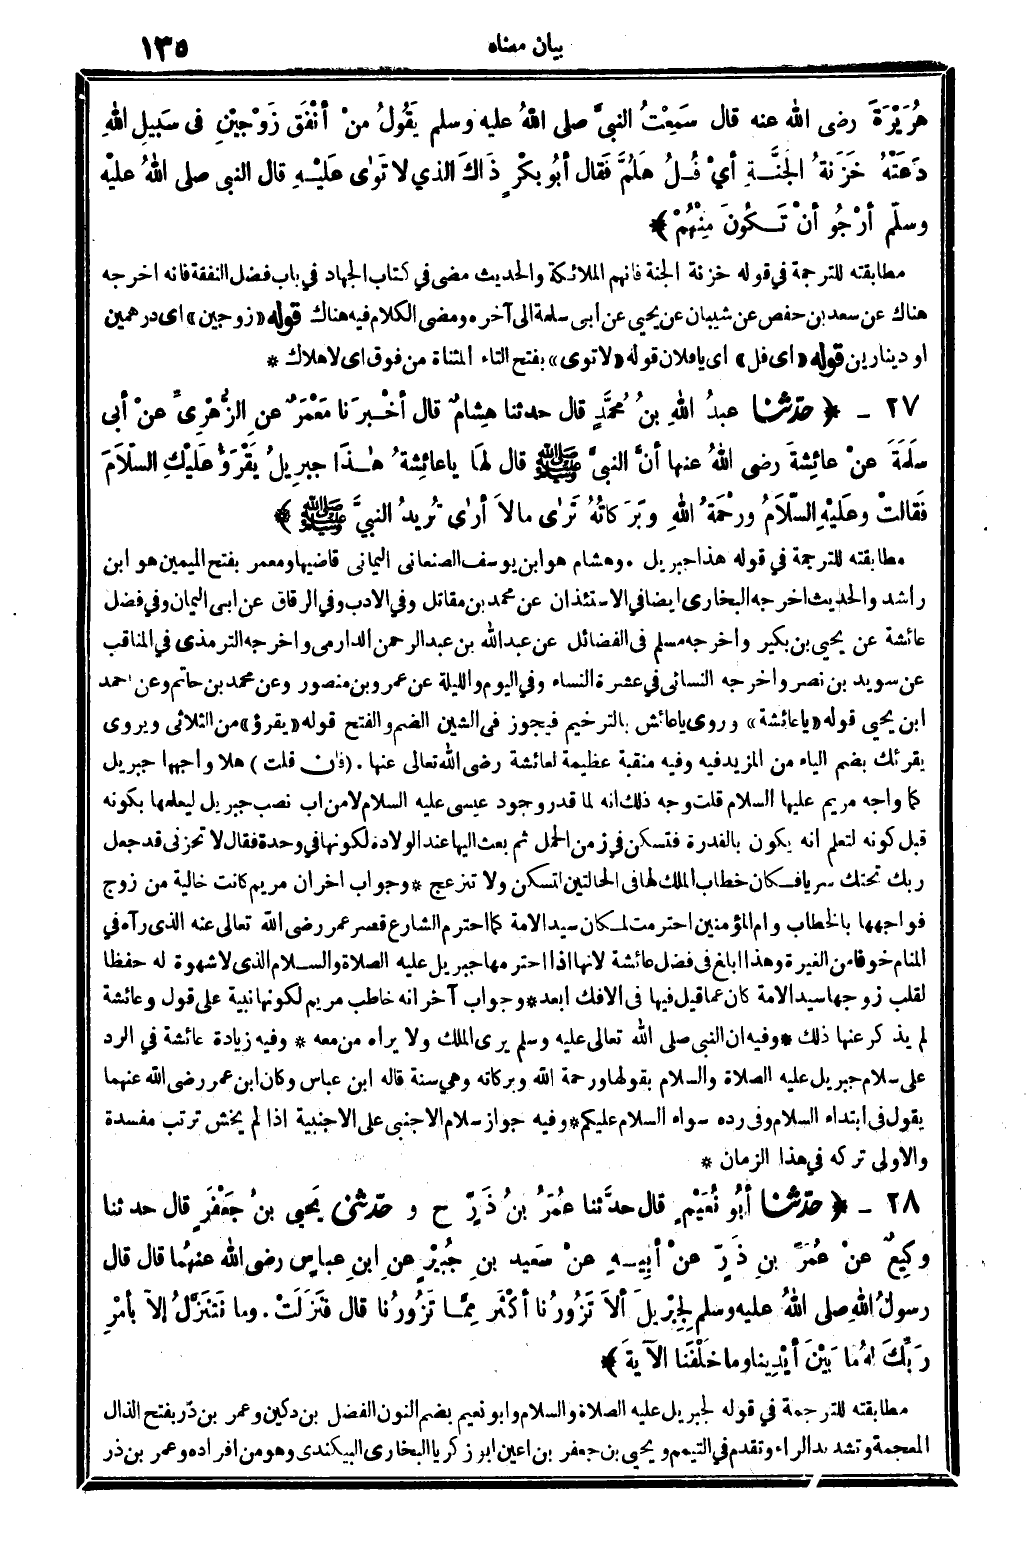 بيان معناه ١٣٥
هُرَيْرَةَ رضى الله عنه قال سَمِعْتُ النبيَّ صلى اللهُ عليه وسلم يَقُولُ مَنْ أنْفَقَ زَوْجَيْنِ فى سَبِيلِ اللهِ
دَعَتْهُ خَزَنَةُ الجَنَّةِ أيْ فُلُ هَلُمَّ فَقال أبُو بكْرٍ ذَاكَ الذي لا تَوٰى عَلَيْهِ قال النبى صلى اللهُ عليْه
وسلّم أرْجُو أنْ تَكُونَ مِنْهُمْ ﴾
مطابقته للترجمة في قوله خزنة الجنة فانهم الملائكة والحديث مضى في كتاب الجهاد في باب فضل النفقة فانه اخرجه
هناك عن سعد بن حفص عن شيبان عن يحيى عن أبى سلمة الى آخره ومضى الكلام فيه هناك قوله «زوجين» اى درهمين
او دينارين قوله «اى فل» اى يافلان قوله «لاتوى» بفتح التاء المثناة من فوق اى لاهلاك *
٢٧ ـ ﴿ حدّثنا عبدُ اللهِ بنُ مُحمَّدٍ قال حدثنا هِشامٌ قال أخْبرَنا مَعْمَرٌ عنِ الزُّهْرِىِّ عنْ أبى
سلَمَةَ عنْ عائِشةَ رضى اللهُ عنها أنَّ النبيَّ ﷺ قال لهَا ياعائِشةُ هٰذَا جبرِيلُ يَقْرَؤُ عَليْكِ السّلاَمَ
فَقالتْ وعَليْهِ السّلاَمُ ورحْمَةُ اللهِ وبَرَكاتُهُ تَرٰى مالاَ أرٰى تُرِيدُ النبيَّ ﷺ ﴾
مطابقته للترجمة في قوله هذا جبريل . وهشام هو ابن يوسف الصنعانى اليمانى قاضيها ومعمر بفتح الميمين هو ابن
راشد والحديث اخرجه البخارى ايضا في الاستئذان عن محمد بن مقاتل وفي الادب وفي الرقاق عن ابى اليمان وفي فضل
عائشة عن يحيى بن بكير واخرجه مسلم فى الفضائل عن عبدالله بن عبدالرحمن الدارمى واخرجه الترمذى في المناقب
عن سويد بن نصر واخرجه النسائى في عشرة النساء وفي اليوم والليلة عن عمرو بن منصور وعن محمد بن حاتم وعن احمد
ابن يحيى قوله «ياعائشة» وروى ياعائش بالترخيم فيجوز فى الشين الضم والفتح قوله «يقرؤ» من الثلاثى ويروى
يقرئك بضم الياء من المزيد فيه وفيه منقبة عظيمة لعائشة رضى الله تعالى عنها . (فان قلت) هلا واجهها جبريل
كما واجه مريم عليها السلام قلت وجه ذلك انه لما قدر وجود عيسى عليه السلام لامن اب نصب جبريل ليعلمها بكونه
قبل كونه لتعلم انه يكون بالقدرة فتسكن في زمن الحمل ثم بعث اليها عند الولادة لكونها في وحدة فقال لا تحزنى قد جعل
ربك تحتك سريا فكان خطاب الملك لها فى الحالتين لتسكن ولا تنزعج * وجواب اخر ان مريم كانت خالية من زوج
فواجهها بالخطاب وام المؤمنين احترمت لمكان سيد الامة كما احترم الشارع قصر عمر رضى الله تعالى عنه الذى رآه في
المنام خوفا من الغيرة وهذا ابلغ فى فضل عائشة لانها اذا احترمها جبريل عليه الصلاة والسلام الذى لاشهوة له حفظا
لقلب زوجها سيد الامة كان عما قيل فيها فى الافك ابعد * وجواب آخر انه خاطب مريم لكونها نبية على قول وعائشة
لم يذكر عنها ذلك * وفيه ان النبى صلى الله تعالى عليه وسلم يرى الملك ولا يراه من معه * وفيه زيادة عائشة في الرد
على سلام جبريل عليه الصلاة والسلام بقولها ورحمة الله وبركاته وهي سنة قاله ابن عباس وكان ابن عمر رضى الله عنهما
يقول فى ابتداء السلام وفى رده سواء السلام عليكم * وفيه جواز سلام الاجنبى على الاجنبية اذا لم يخش ترتب مفسدة
والاولى تركه في هذا الزمان *
٢٨ ـ ﴿ حدّثنا أبُو نُعَيْمٍ قال حدَّثنا عُمَرُ بنُ ذَرٍّ ح و حدّثنى يَحيى بنُ جَعْفَرٍ قال حدثنا
وكِيعٌ عنْ عُمَرَ بنِ ذَرٍّ عنْ أبِيهِ عنْ سَعيدِ بنِ جُبَيْرٍ عنِ ابنِ عباسٍ رضى الله عنهُما قال قال
رسولُ اللهِ صلى اللهُ عليه وسلم لِجِبْرِيلَ ألاَ تَزُورُنا أكْثَر مِمَّا تَزُورُنا قال فَنَزَلَتْ . وما نَتَنَزَّلُ إلاّ بأمْرِ
رَبِّكَ لهُ ما بَيْنَ أيْدِينا وما خَلْفَنا الآيَةَ ﴾
مطابقته للترجمة في قوله لجبريل عليه الصلاة والسلام وابو نعيم بضم النون الفضل بن دكين وعمر بن ذر بفتح الذال
المعجمة وتشديد الراء وتقدم في التيمم ويحيى بن جعفر بن اعين ابو زكريا البخارى البيكندى وهو من افراده وعمر بن ذر